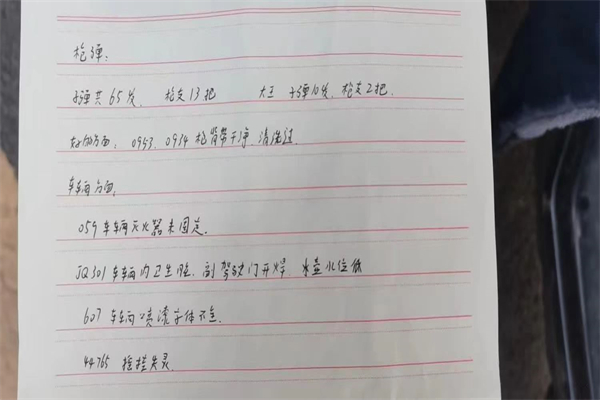 枪弹:
子弹共65发、枪支13把 大王 子弹10发、枪支2把.
好的方面: 0943、0934枪背带干净、清洗过.
车辆方面.
059车车辆灭火器未固定.
JQ301车车辆内卫生脏、副驾驶门开焊 水壶水位低
607车车辆喷漆字体不全.
44765 摇控失灵.